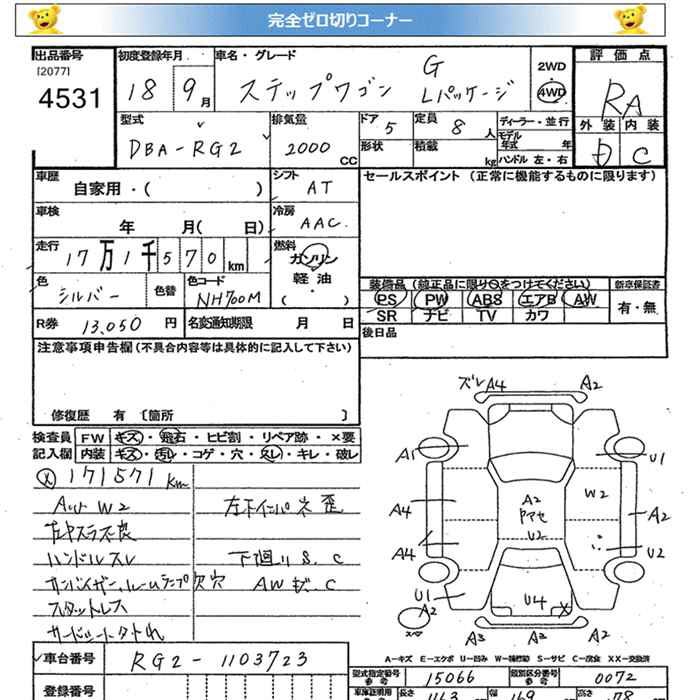 完全ゼロ切りコーナー
出品番号
[2077]
4531
初度登録年月
18 9月
車名・グレード
ステップワゴン G Lパッケージ
2WD
・
4WD
評価点
RA
外装 内装
C
型式
DBA-RG2
排気量
2000 CC
ドア 5
形状
定員 8 人
積載 kg
ディーラー・並行
モデル年式 年
ハンドル 左・右
車歴
自家用・( )
シフト
AT
セールスポイント (正常に機能するものに限ります)
車検
年 月( 日)
冷房
AAC
走行
17万1千570km
燃料
ガソリン
軽油
・( )
色
シルバー
色替
色コード
NH700M
装備品 (純正品に限り○をつけてください)
新車保証書
PS PW ABS エアB AW
有・無
SR ナビ TV カワ
R券 13,050 円
名変通知期限 月 日
後日品
注意事項申告欄(不具合内容等は具体的に記入して下さい)
修復歴 有 [箇所 ]
検査員
記入欄
FW キズ・飛石・ヒビ割・リペア跡・×要
内装 キズ・汚レ・コゲ・穴・スレ・キレ・破レ
171571 km
W2
ハンドルスレ
下廻り S.C
サンバイザー,ルームランプ欠 穴
AWキズ.C
スタットレス
ズレ A4 A2
A1 U1
A4 A2 W2 A2
ヤアセ
A4 U2 U2
U1 U4 X
A2 A2
スペア
A3 A3
A-キズ E-エクボ U-凹み W-補修跡 S-サビ C-腐食 XX-交換済
車台番号
RG2-1103723
型式指定番号 参考
15066
類別区分番号 参考
0072
登録番号
車庫証明用 参考
長さ
幅 169
高さ